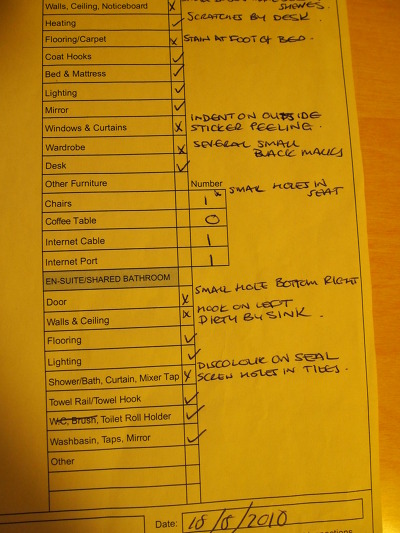 Walls, Ceiling, Noticeboard x SHEWES.
Heating ✓ SCRATCHES BY DESK.
Flooring/Carpet x STAIN AT FOOT OF BED.
Coat Hooks ✓
Bed & Mattress ✓
Lighting ✓
Mirror ✓
INDENT ON OUTSIDE
Windows & Curtains x STICKER PEELING.
Wardrobe x SEVERAL SMALL
BLACK MARKS
Desk ✓
Other Furniture Number
SMALL HOLES IN
SEAT
Chairs 1 x
Coffee Table 0
Internet Cable 1
Internet Port 1
EN-SUITE/SHARED BATHROOM
SMALL HOLE BOTTOM RIGHT
Door x HOOK ON LEFT
Walls & Ceiling x DIRTY BY SINK.
Flooring ✓
Lighting ✓
DISCOLOUR ON SEAL
Shower/Bath, Curtain, Mixer Tap x SCREW HOLES IN TILES.
Towel Rail/Towel Hook ✓
W.C, Brush, Toilet Roll Holder ✓
Washbasin, Taps, Mirror ✓
Other
Date: 18/8/2010